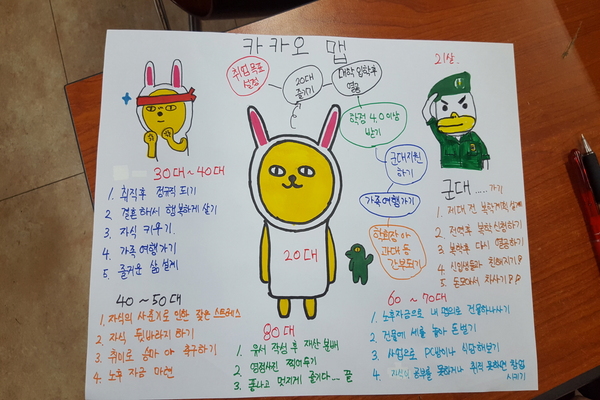 카카오 맵
취업목표
설정
20대
즐기기
대학 입학후
열공
학점 4.0 이상
받기
군대지원
하기
가족여행가기
학회장 아
과대 등
간부되기
21살.
20대
30대~40대
1. 취직후 정규직 되기
2. 결혼해서 행복하게 살기
3. 자식 키우기.
4. 가족 여행가기
5. 즐거운 삶 설계
군대..... 가기
1. 제대 전 복학계획 설계
2. 전역후 복학신청하기
3. 복학후 다시 열공하기
4. 신입생들과 친해지기
5. 돈모아서 차사기
40~50대
1. 자식의 사춘기로 인한 잦은 스트레스
2. 자식 뒷바라지 하기
3. 취미로 등마 아 축구하기
4. 노후 자금 마련
80대
1. 유서 작성 후 재산 분배
2. 영정사진 찍어두기
3. 폼나고 멋지게 즐기다... 끝
60~70대
1. 노후자금으로 내 명의로 건물하나사기
2. 건물에 세를 놓아 돈벌기
3. 사업으로 PC방이나 식당해보기
4. 자식이 공부를 못하거나 취직 못하면 창업
시키기